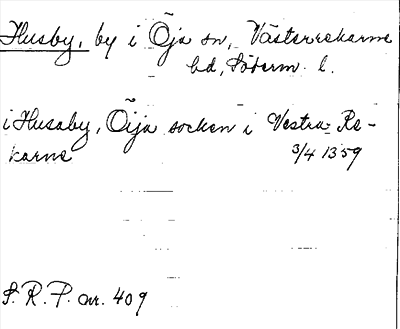 Husby, by i Öja sn, Västerrekarne
hd, Söderm. l.
i Husaby, Öija socken i Vestra Re-
karne
3/4 1359
S. R. P. nr. 409